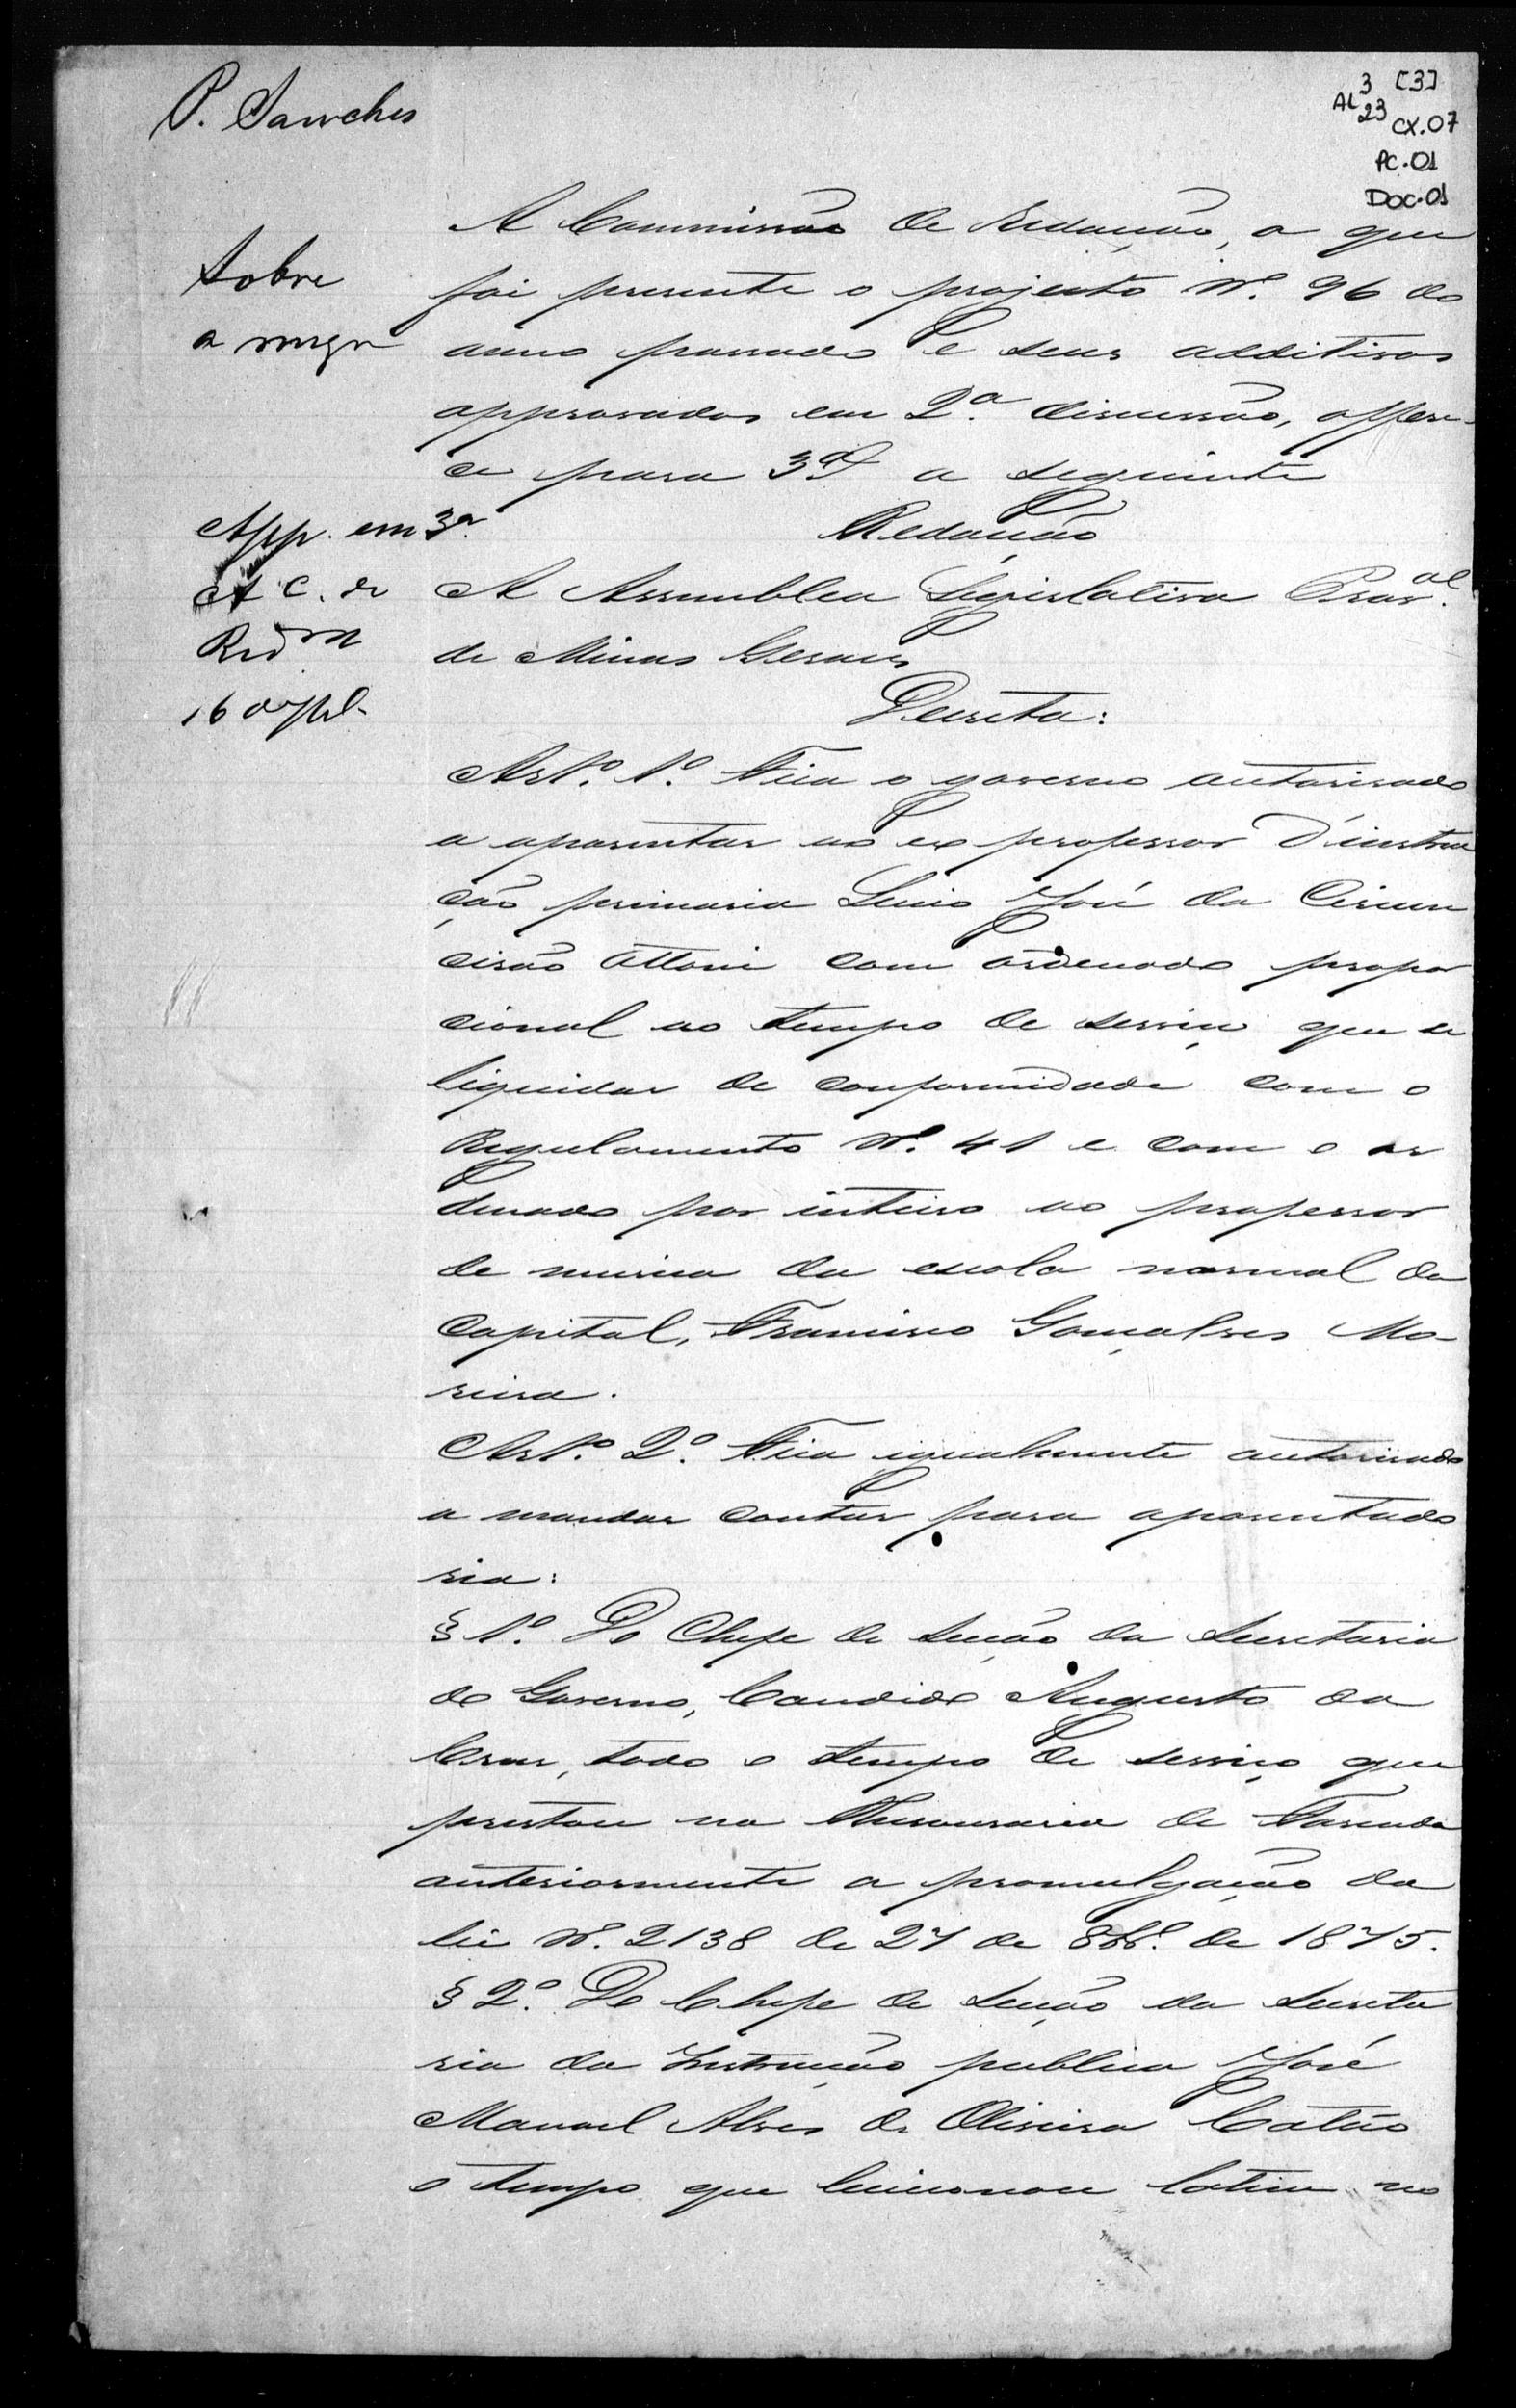 P. Sanches
3 [3]
AL 23 CX.07
PC.01
DOC.01
Sobre
a mesa
A Commissão de Redacção, a que
foi presente o projecto Nº. 96 do
anno passado e seus additivos
approvados em 2ª. discussão, offere-
ce para 3ª a seguinte
App. em 3ª.
Redacção
A C. de
Redm
16 april
A Assemblea Legislativa Proval.
de Minas Geraes
Decreta:
Artº. 1º. Fica o governo autorisado
a aposentar ao ex professor d'instru
cção primaria Lucio José da Circum
cisão Ottoni com ordenado propor
cional ao tempo de serviço que se
liquidar de conformidade com o
Regulamento Nº. 41 e com o or
denado por inteiro ao professor
de musica da escola normal da
Capital, Francisco Gonçalves Mo-
reira.
Artº. 2º. Fica igualmente autorisado
a mandar contar para aposentado
ria:
§ 1º. Do Chefe de Secção da Secretaria
do Governo, Candido Augusto da
Cruz, todo o tempo de serviço que
prestou na Thesouraria de Fasenda
anteriormente a promulgação da
lei Nº. 2138 de 27 de 8brº. de 1875.
§ 2º. Do Chefe de Secção da Secreta
ria da Instrucção publica José
Manoel Alves de Oliveira Catão
o tempo que leccionou latim no